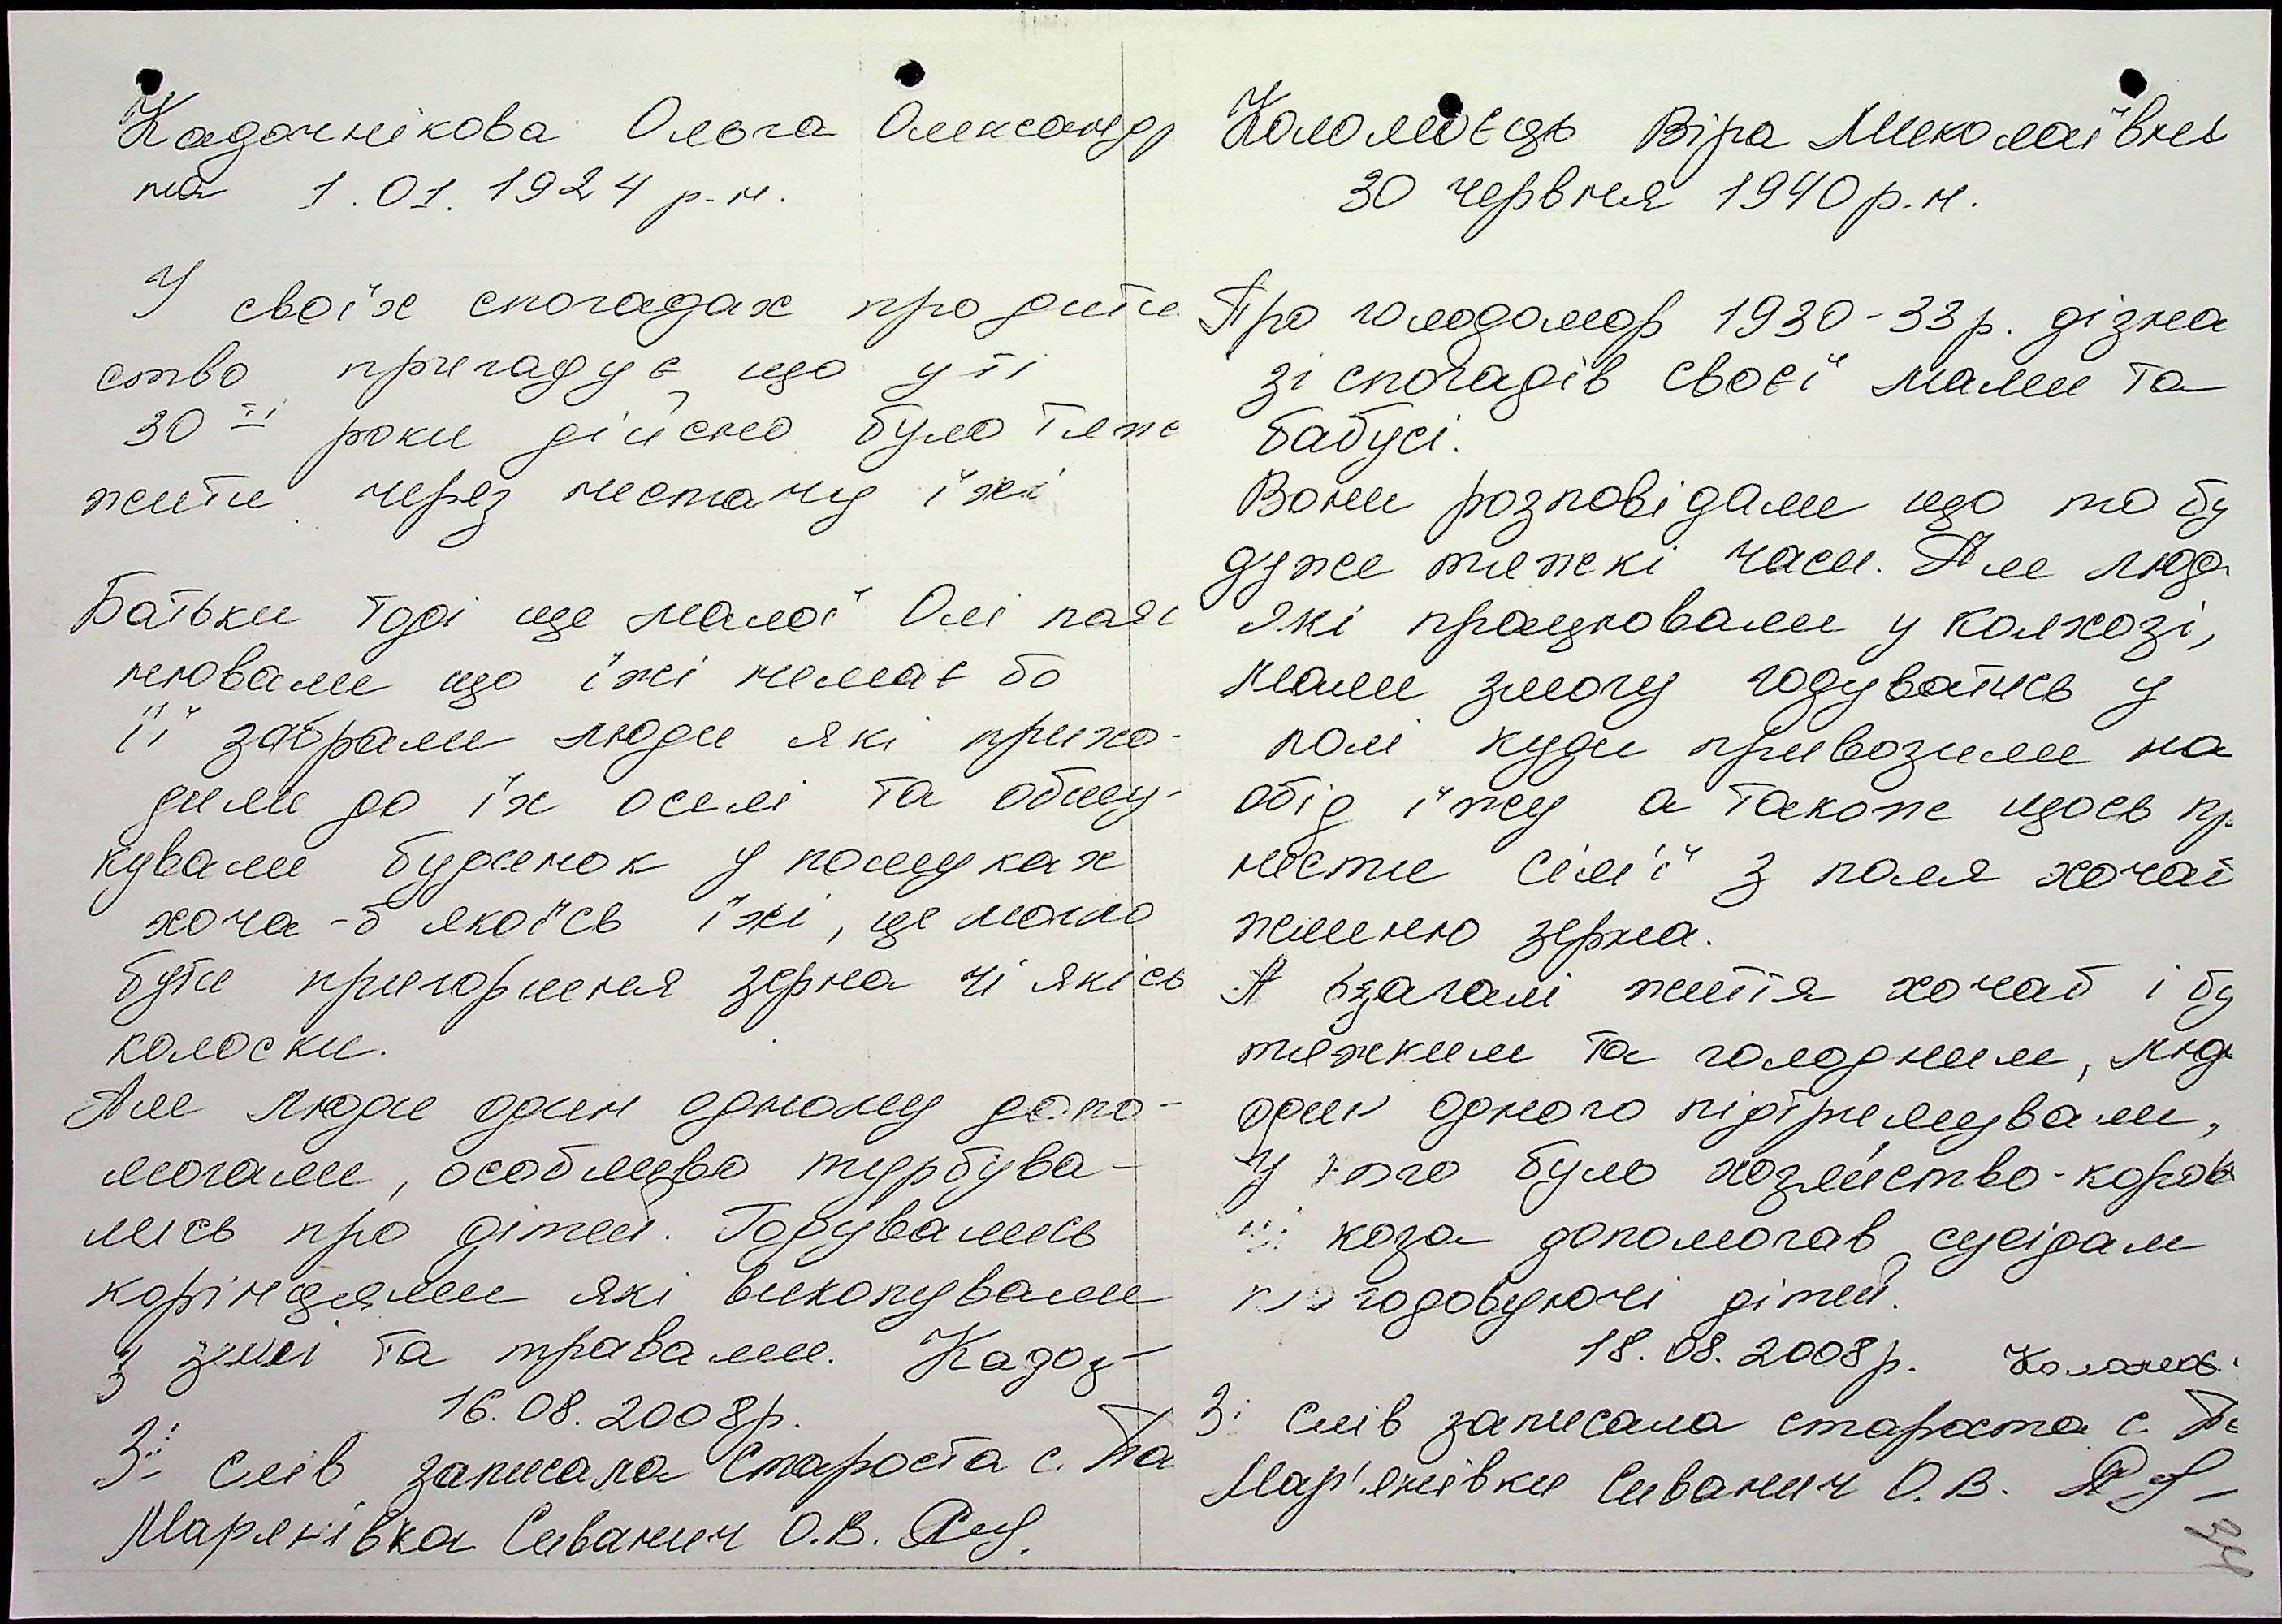 Кадачнікова Ольга Олександр
на 1.01.1924 р.н.
У своїх спогадах про дити
ство пригадує що у ті
30ті роки дійсно було тяж
жити через нестачу їжі
Батьки тоді ще малої Олі пояс
нювали що їжі немає бо
її забрали люди які прихо-
дили до їх оселі та обшу-
кували будинок у пошуках
хоча-б якоїсь їжі, це могло
бути пригоршня зерна чі якісь
колоски.
Але люди один одному допо-
могали, особливо турбува-
лись про дітей. Годувались
корінцями які викопували
з землі та травами. Кадоч
16.08.2008р.
Зі слів записала Староста с.
Мар'янівка Сиванич О.В.
Коломієць Віра Миколаївна
30 червня 1940р.н.
Про голодомор 1930-33р. дізна
зі спогадів своєї мами та
бабусі.
Вони розповідали що то бу
дуже тяжкі часи. Але люд
які працювали у колхозі,
мали змогу годуватись у
полі куди привозили на
обід їжу а також щось пр
нести сім'ї з поля хочаб
жменю зерна.
А взагалі життя хочаб і бу
тяжким та голодним, люд
один одного підтримували,
У кого було хозяйство-коров
чі коза допомогав сусідам
підгодовуючі дітей.
18.08.2008р.
Зі слів записала староста с.
Мар'янівки Сиванич О.В.
34